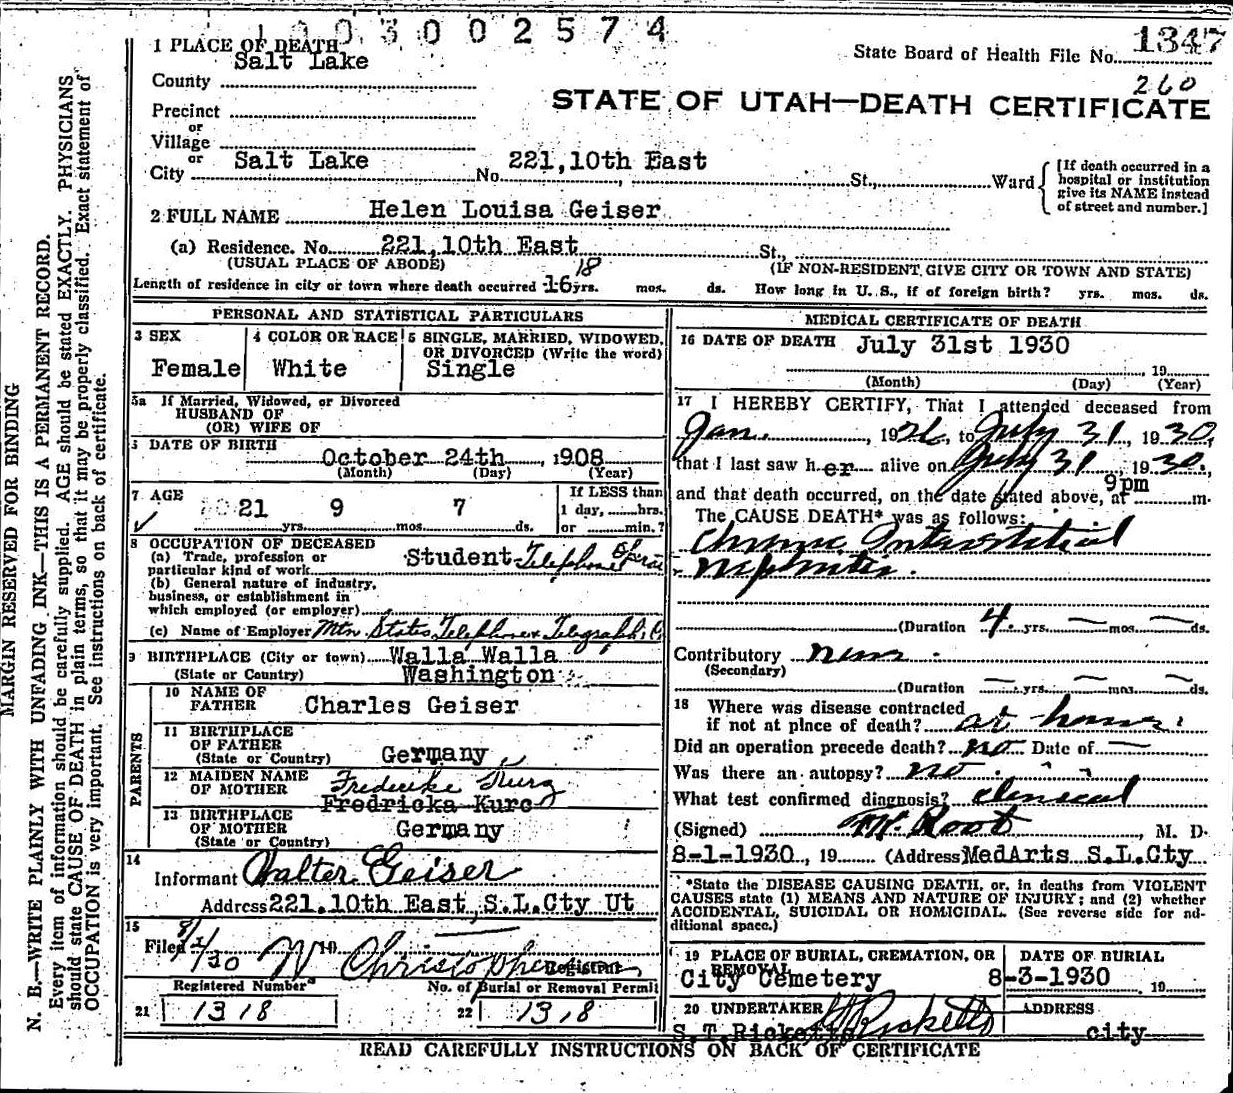 1003002574
1 PLACE OF DEATH
State Board of Health File No. 1347
Salt Lake
County
260
STATE OF UTAH—DEATH CERTIFICATE
Precinct
or
Village
or
City Salt Lake No. 221,10th East St., Ward
[If death occurred in a
hospital or institution
give its NAME instead
of street and number.]
2 FULL NAME Helen Louisa Geiser
(a) Residence. No. 221,10th East St.,
(USUAL PLACE OF ABODE) (IF NON-RESIDENT, GIVE CITY OR TOWN AND STATE)
18
Length of residence in city or town where death occurred 16 yrs. mos. ds. How long in U. S., if of foreign birth? yrs. mos. ds.
PERSONAL AND STATISTICAL PARTICULARS
3 SEX
Female
4 COLOR OR RACE
White
5 SINGLE, MARRIED, WIDOWED,
OR DIVORCED (Write the word)
Single
5a If Married, Widowed, or Divorced
HUSBAND OF
(OR) WIFE OF
DATE OF BIRTH
October 24th, 1908
(Month) (Day) (Year)
7 AGE
21 yrs. 9 mos. 7 ds.
If LESS than
1 day, hrs.
or min.?
8 OCCUPATION OF DECEASED
(a) Trade, profession or
particular kind of work Student Telephone
(b) General nature of industry,
business, or establishment in
which employed (or employer)
(c) Name of Employer Mtn States Telephone & Telegraph Co
9 BIRTHPLACE (City or town) Walla Walla
(State or Country) Washington
PARENTS
10 NAME OF
FATHER Charles Geiser
11 BIRTHPLACE
OF FATHER
(State or Country) Germany
12 MAIDEN NAME
OF MOTHER Frederike Kurz
Fredricka Kurc
13 BIRTHPLACE
OF MOTHER
(State or Country) Germany
14
Informant Walter Geiser
Address 221.10th East, S.L.Cty Ut
15
Filed 8/1/30 19
W Christopherson
Registrar
Registered Number
No. of Burial or Removal Permit
21 1318
22 1318
MEDICAL CERTIFICATE OF DEATH
16 DATE OF DEATH July 31st 1930
, 19
(Month) (Day) (Year)
17 I HEREBY CERTIFY, That I attended deceased from
Jan. , 1926, to July 31, 1930,
that I last saw her alive on July 31, 1930,
and that death occurred, on the date stated above, at 9pm m.
The CAUSE DEATH* was as follows:
Chronic Interstitial
Nephritis.
(Duration 4 yrs. — mos — ds.
Contributory none.
(Secondary)
(Duration — yrs. — mos. — ds.
18 Where was disease contracted
if not at place of death? at home.
Did an operation precede death? no Date of —
Was there an autopsy? no.
What test confirmed diagnosis? clinical
(Signed) Root, M. D.
8-1-1930, 19 (Address MedArts S.L.Cty
*State the DISEASE CAUSING DEATH, or, in deaths from VIOLENT
CAUSES state (1) MEANS AND NATURE OF INJURY; and (2) whether
ACCIDENTAL, SUICIDAL OR HOMICIDAL. (See reverse side for ad-
ditional space.)
19 PLACE OF BURIAL, CREMATION, OR
REMOVAL
City Cemetery
DATE OF BURIAL
8-3-1930 , 19
20 UNDERTAKER
S.T.Ricketts Ricketts
ADDRESS
city
READ CAREFULLY INSTRUCTIONS ON BACK OF CERTIFICATE
MARGIN RESERVED FOR BINDING
N. B.—WRITE PLAINLY WITH UNFADING INK—THIS IS A PERMANENT RECORD.
Every item of information should be carefully supplied. AGE should be stated EXACTLY. PHYSICIANS
should state CAUSE OF DEATH in plain terms, so that it may be properly classified. Exact statement of
OCCUPATION is very important. See instructions on back of certificate.